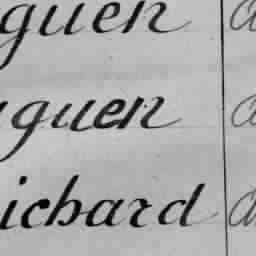 guen
guen
ichard